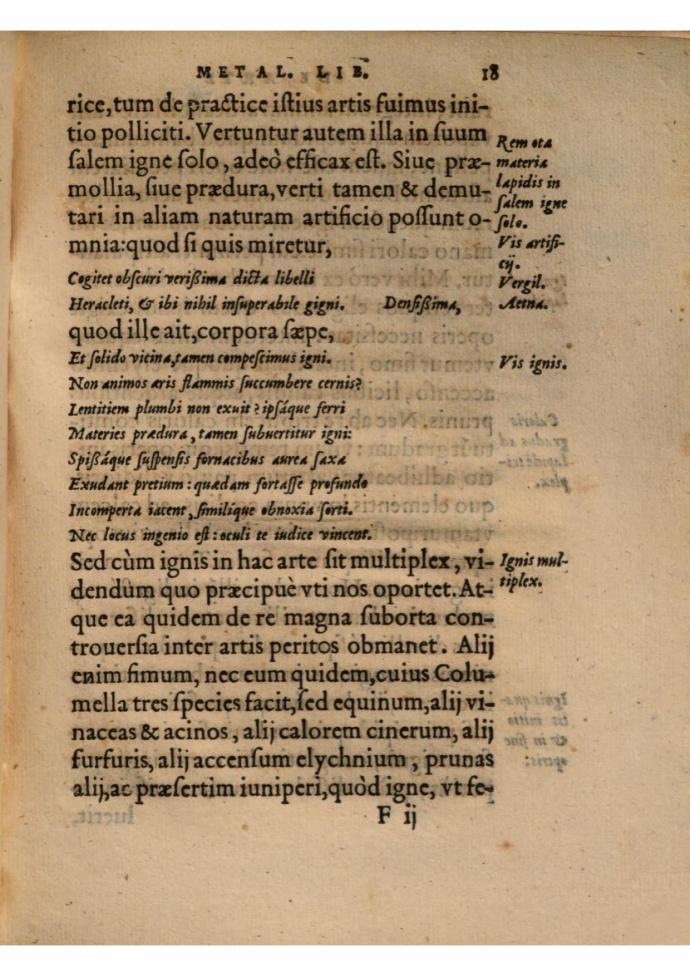 METAL. LIB. 18
rice, tum de practice istius artis fuimus ini-
tio polliciti. Vertuntur autem illa in suum
salem igne solo, adeò efficax est. Siue præ-
mollia, siue prædura, verti tamen & demu-
tari in aliam naturam artificio possunt o-
mnia: quod si quis miretur,
Cogitet obscuri verißima dicta libelli
Heracleti, & ibi nihil insuperabile gigni. Densißima,
quod ille ait, corpora sæpe,
Et solido vicina, tamen compescimus igni.
Non animos æris flammis succumbere cernis?
Lentitiem plumbi non exuit? ipsáque ferri
Materies prædura, tamen subuertitur igni:
Spißáque suspensis fornacibus aurea saxa
Exudant pretium: quædam fortasse profundo
Incomperta iacent, similique obnoxia sorti.
Nec locus ingenio est: oculi te iudice vincent.
Sed cùm ignis in hac arte sit multiplex, vi-
dendum quo præcipuè vti nos oportet. At-
que ea quidem de re magna suborta con-
trouersia inter artis peritos obmanet. Alij
enim fimum, nec eum quidem, cuius Colu-
mella tres species facit, sed equinum, alij vi-
naceas & acinos, alij calorem cinerum, alij
furfuris, alij accensum elychnium, prunas
alij, ac præsertim iuniperi, quòd igne, vt fe-
F ij
Remota
materia
lapidis in
salem igne
solo.
Vis artifi-
cij.
Vergil.
Aetna.
Vis ignis.
Ignis mul-
tiplex.